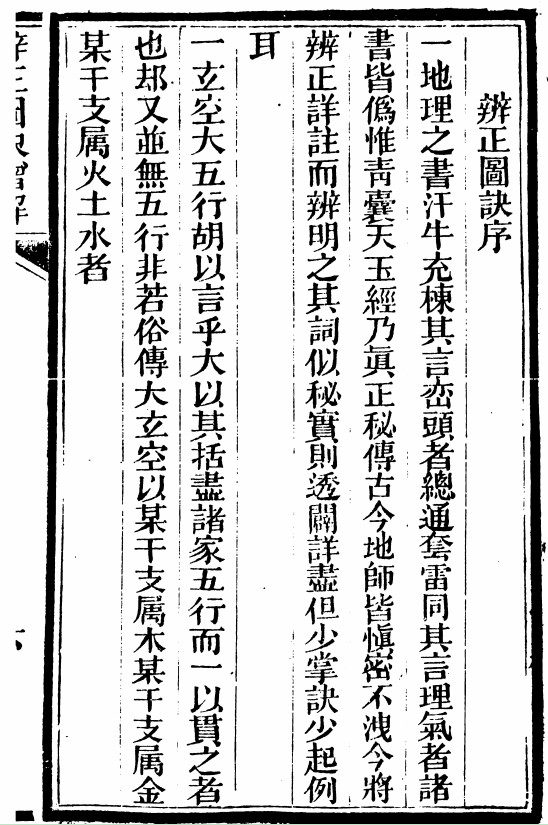 辨正圖訣序
一地理之書汗牛充棟其言峦頭者總通套雷同其言理氣者諸
書皆僞惟靑囊天玉經乃眞正秘傳古今地師皆愼密不洩今將
辨正詳註而辨明之其詞似秘實則透闢詳盡但少掌訣少起例
耳
一玄空大五行胡以言乎大以其括盡諸家五行而一以貫之者
也却又並無五行非若俗傳大玄空以某干支属木某干支属金
某干支属火土水者